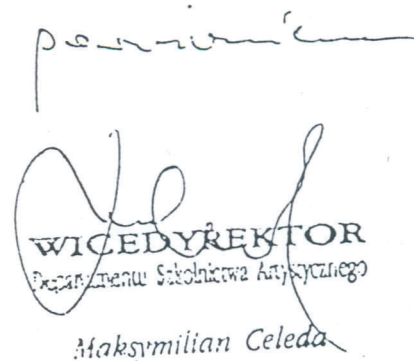 WICEDYREKTOR
Departamentu Szkolnictwa Artystycznego
Maksymilian Celeda